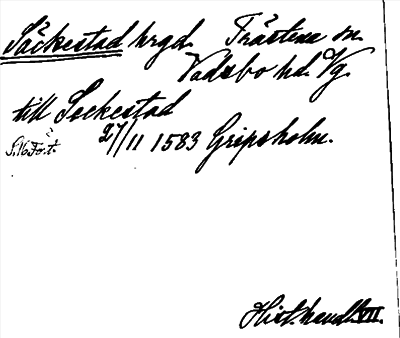 Säckestad hrgd. Trästena sn.
Vadsbo hd. Vg.
till Seckestad
27/11 1583 Gripsholm.
Hist. handl. VII.